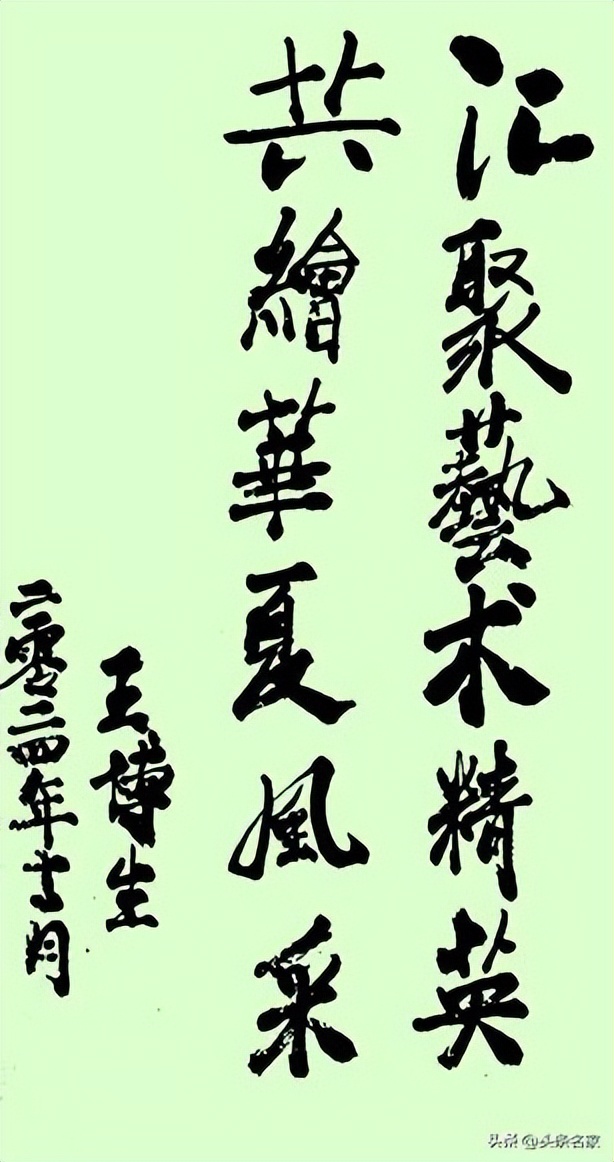 汇聚藝术精英
共繪華夏風采
王博生
二零二四年 月
头条 @头条名家